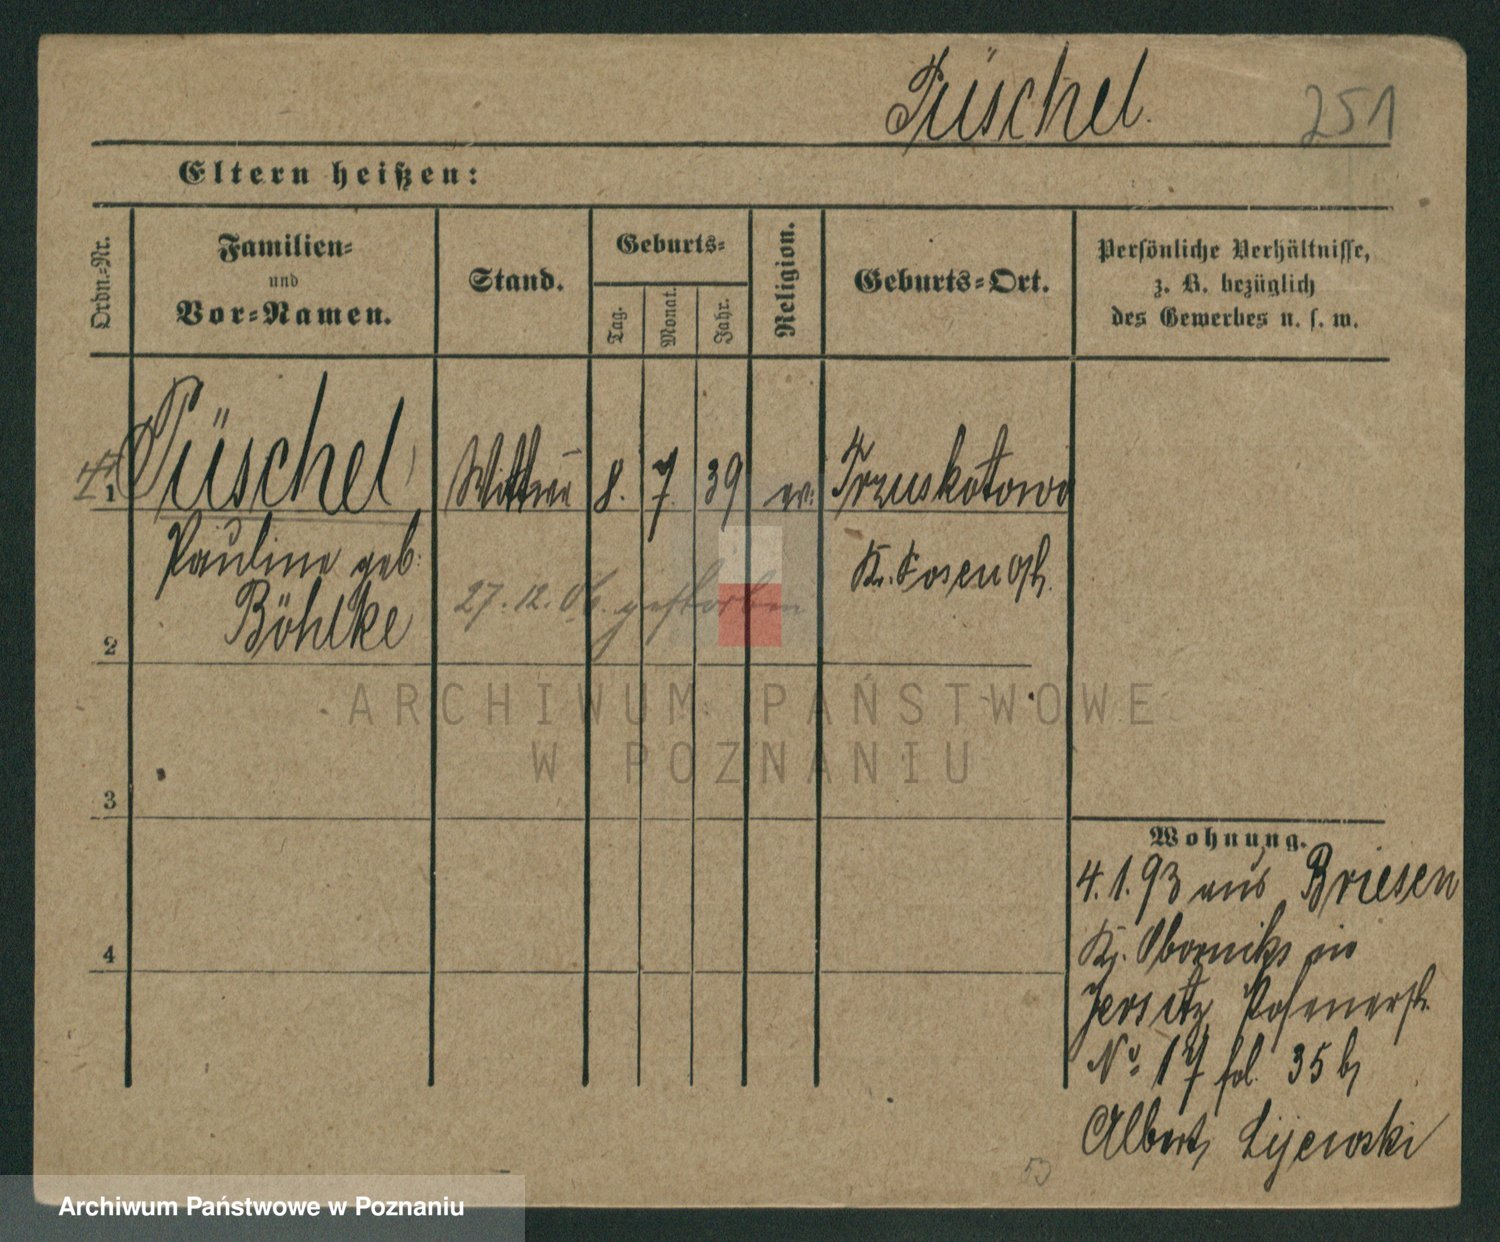 Püschel.
251
Eltern heißen:
Ordn.-Nr.
Familien-
und
Vor-Namen.
Stand.
Geburts-
Tag.
Monat.
Jahr.
Religion.
Geburts-Ort.
Persönliche Verhältnisse,
z. B. bezüglich
des Gewerbes u. s. w.
1 Püschel Wittwe 8. 7. 39 ev. Trzuskotowo
Pauline geb. Kr. Posen
Böhlke
27.12.06. gestorben
2
ARCHIWUM PAŃSTWOWE
W POZNANIU
3
4
Wohnung.
4.1.93 aus Briesen
Kr. Obornik in
Jersitz Posenerstr.
No 17 fol. 35 b
Albert Lijewski
53
Archiwum Państwowe w Poznaniu